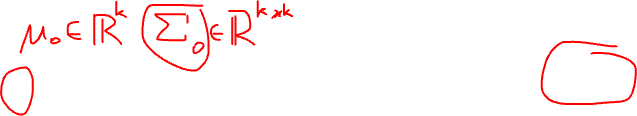 μ₀ ∈ ℝᵏ Σ₀ ∈ ℝᵏˣᵏ